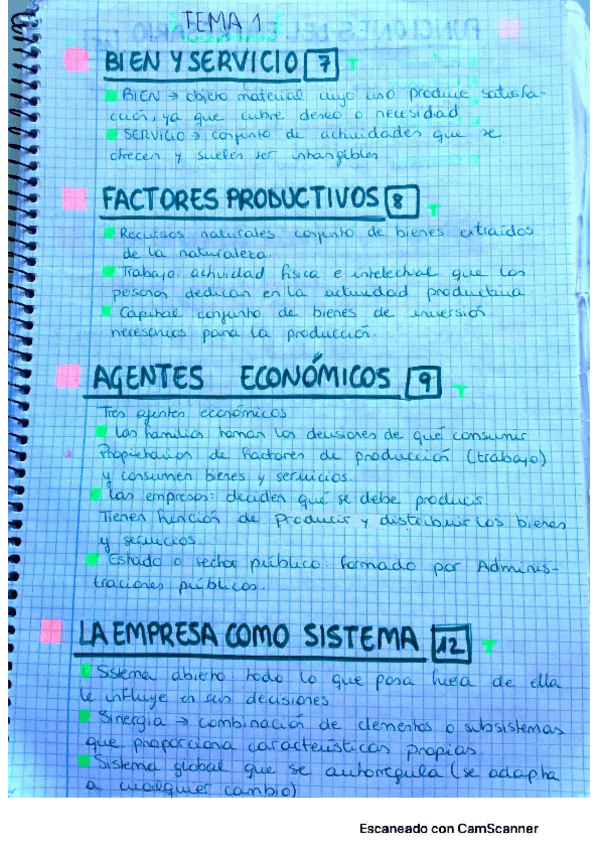 TEMA 1
BIEN Y SERVICIO 7 T
BIEN → objeto material cuyo uso produce satisfa-
cción, ya que cubre deseo o necesidad
SERVICIO → conjunto de actividades que se
ofrecen y suelen ser intangibles
FACTORES PRODUCTIVOS 8 T
Recursos naturales: conjunto de bienes extraídos
de la naturaleza.
Trabajo: actividad física e intelectual que las
personas dedican en la actividad productiva
Capital: conjunto de bienes de inversión
necesarios para la producción.
AGENTES ECONÓMICOS 9 T
Tres agentes económicos
Las familias: toman las decisiones de qué consumir
Propietarios de factores de producción (trabajo)
y consumen bienes y servicios.
Las empresas: deciden qué se debe producir
Tienen función de producir y distribuir los bienes
y servicios
Estado o sector público: formado por Adminis-
traciones públicas.
LA EMPRESA COMO SISTEMA 12 T
Sistema abierto: todo lo que pasa fuera de ella
le influye en sus decisiones
Sinergia → combinación de elementos o subsistemas
que proporciona características propias
Sistema global que se autorregula (se adapta
a cualquier cambio)
Escaneado con CamScanner